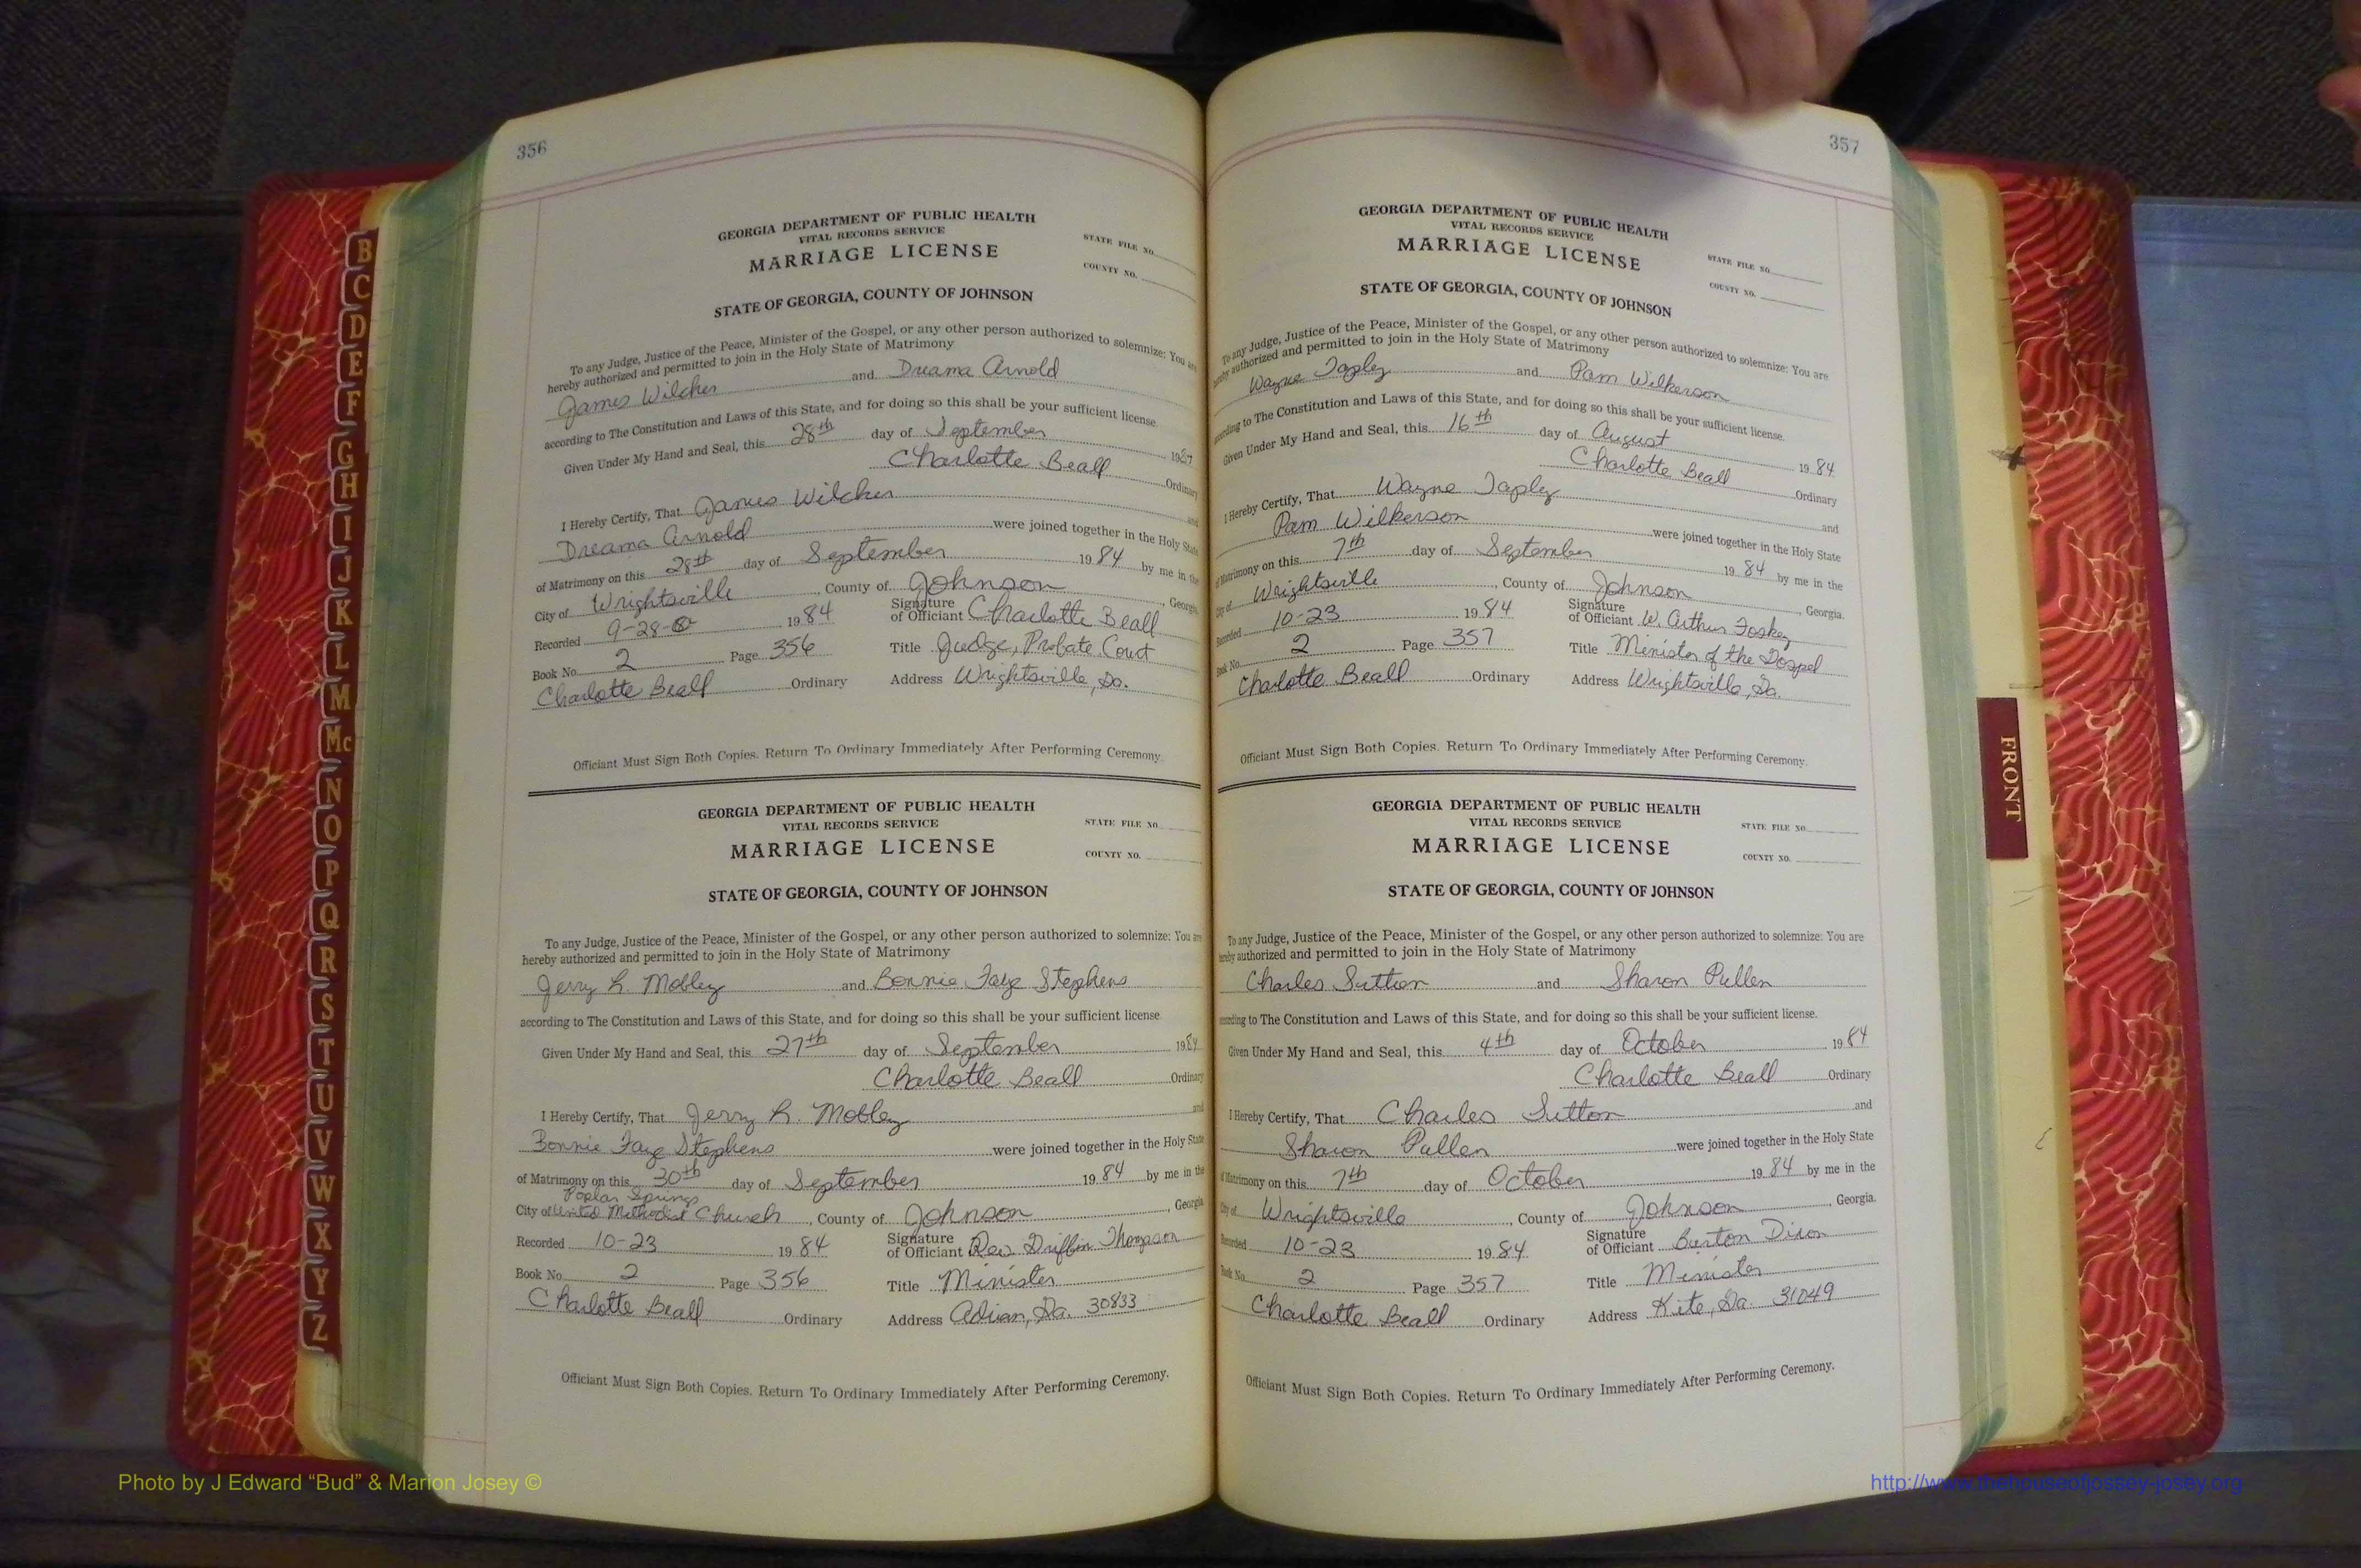 356
GEORGIA DEPARTMENT OF PUBLIC HEALTH
VITAL RECORDS SERVICE
MARRIAGE LICENSE
STATE FILE NO.
COUNTY NO.
STATE OF GEORGIA, COUNTY OF JOHNSON
To any Judge, Justice of the Peace, Minister of the Gospel, or any other person authorized to solemnize: You are
hereby authorized and permitted to join in the Holy State of Matrimony
James Wilcher and Dreama Arnold
according to The Constitution and Laws of this State, and for doing so this shall be your sufficient license.
Given Under My Hand and Seal, this 28th day of September 19
Charlotte Beall Ordinary
I Hereby Certify, That James Wilcher and
Dreama Arnold were joined together in the Holy State
of Matrimony on this 28th day of September 1984 by me in the
City of Wrightsville, County of Johnson, Georgia.
Recorded 9-28- 1984 Signature of Officiant Charlotte Beall
Book No. 2 Page 356 Title Judge, Probate Court
Charlotte Beall Ordinary Address Wrightsville, Ga.
Officiant Must Sign Both Copies. Return To Ordinary Immediately After Performing Ceremony.
GEORGIA DEPARTMENT OF PUBLIC HEALTH
VITAL RECORDS SERVICE
MARRIAGE LICENSE
STATE FILE NO.
COUNTY NO.
STATE OF GEORGIA, COUNTY OF JOHNSON
To any Judge, Justice of the Peace, Minister of the Gospel, or any other person authorized to solemnize: You are
hereby authorized and permitted to join in the Holy State of Matrimony
Jerry L. Mobley and Bonnie Faye Stephens
according to The Constitution and Laws of this State, and for doing so this shall be your sufficient license.
Given Under My Hand and Seal, this 27th day of September 1984
Charlotte Beall Ordinary
I Hereby Certify, That Jerry L. Mobley and
Bonnie Faye Stephens were joined together in the Holy State
of Matrimony on this 30th day of September 1984 by me in the
Poplar Springs
City of United Methodist Church, County of Johnson, Georgia
Recorded 10-23 1984 Signature of Officiant Rev. Griffin Thompson
Book No. 2 Page 356 Title Minister
Charlotte Beall Ordinary Address Adrian, Ga. 30833
Officiant Must Sign Both Copies. Return To Ordinary Immediately After Performing Ceremony.
357
GEORGIA DEPARTMENT OF PUBLIC HEALTH
VITAL RECORDS SERVICE
MARRIAGE LICENSE
STATE FILE NO.
COUNTY NO.
STATE OF GEORGIA, COUNTY OF JOHNSON
To any Judge, Justice of the Peace, Minister of the Gospel, or any other person authorized to solemnize: You are
hereby authorized and permitted to join in the Holy State of Matrimony
Wayne Tapley and Pam Wilkerson
according to The Constitution and Laws of this State, and for doing so this shall be your sufficient license.
Given Under My Hand and Seal, this 16th day of August 1984
Charlotte Beall Ordinary
I Hereby Certify, That Wayne Tapley and
Pam Wilkerson were joined together in the Holy State
of Matrimony on this 7th day of September 1984 by me in the
City of Wrightsville, County of Johnson, Georgia.
Recorded 10-23 1984 Signature of Officiant W. Arthur Foskey
Book No. 2 Page 357 Title Minister of the Gospel
Charlotte Beall Ordinary Address Wrightsville, Ga.
Officiant Must Sign Both Copies. Return To Ordinary Immediately After Performing Ceremony.
GEORGIA DEPARTMENT OF PUBLIC HEALTH
VITAL RECORDS SERVICE
MARRIAGE LICENSE
STATE FILE NO.
COUNTY NO.
STATE OF GEORGIA, COUNTY OF JOHNSON
To any Judge, Justice of the Peace, Minister of the Gospel, or any other person authorized to solemnize: You are
hereby authorized and permitted to join in the Holy State of Matrimony
Charles Sutton and Sharon Pullen
according to The Constitution and Laws of this State, and for doing so this shall be your sufficient license.
Given Under My Hand and Seal, this 4th day of October 1984
Charlotte Beall Ordinary
I Hereby Certify, That Charles Sutton and
Sharon Pullen were joined together in the Holy State
of Matrimony on this 7th day of October 1984 by me in the
City of Wrightsville, County of Johnson, Georgia.
Recorded 10-23 1984 Signature of Officiant Burton Dixon
Book No. 2 Page 357 Title Minister
Charlotte Beall Ordinary Address Kite, Ga. 31049
Officiant Must Sign Both Copies. Return To Ordinary Immediately After Performing Ceremony.
B
C
D
E
F
G
H
I
J
K
L
M
Mc
N
O
P
Q
R
S
T
U
V
W
X
Y
Z
FRONT
Photo by J Edward “Bud” & Marion Josey ©
http://www.thehouseofjossey-josey.org